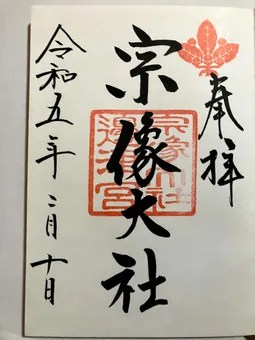 奉拝
宗像大社
宗像大社
邊津宮
令和五年二月十日